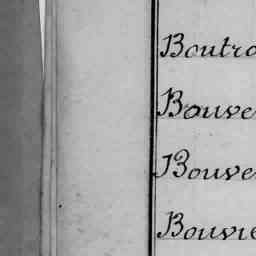 Boutro
Bouve
Bouve
Bouvie